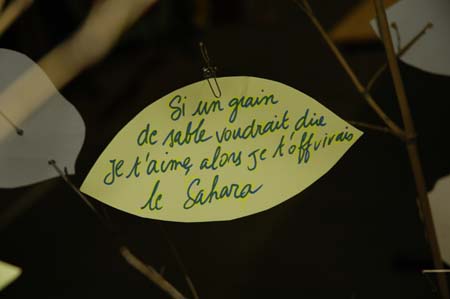 Si un grain
de sable voudrait dire
je t'aime, alors je t'offrirais
le Sahara